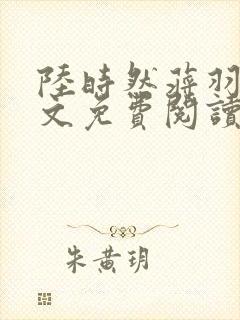 陸時然蔣羽
文免費閱讀
朱黃玥